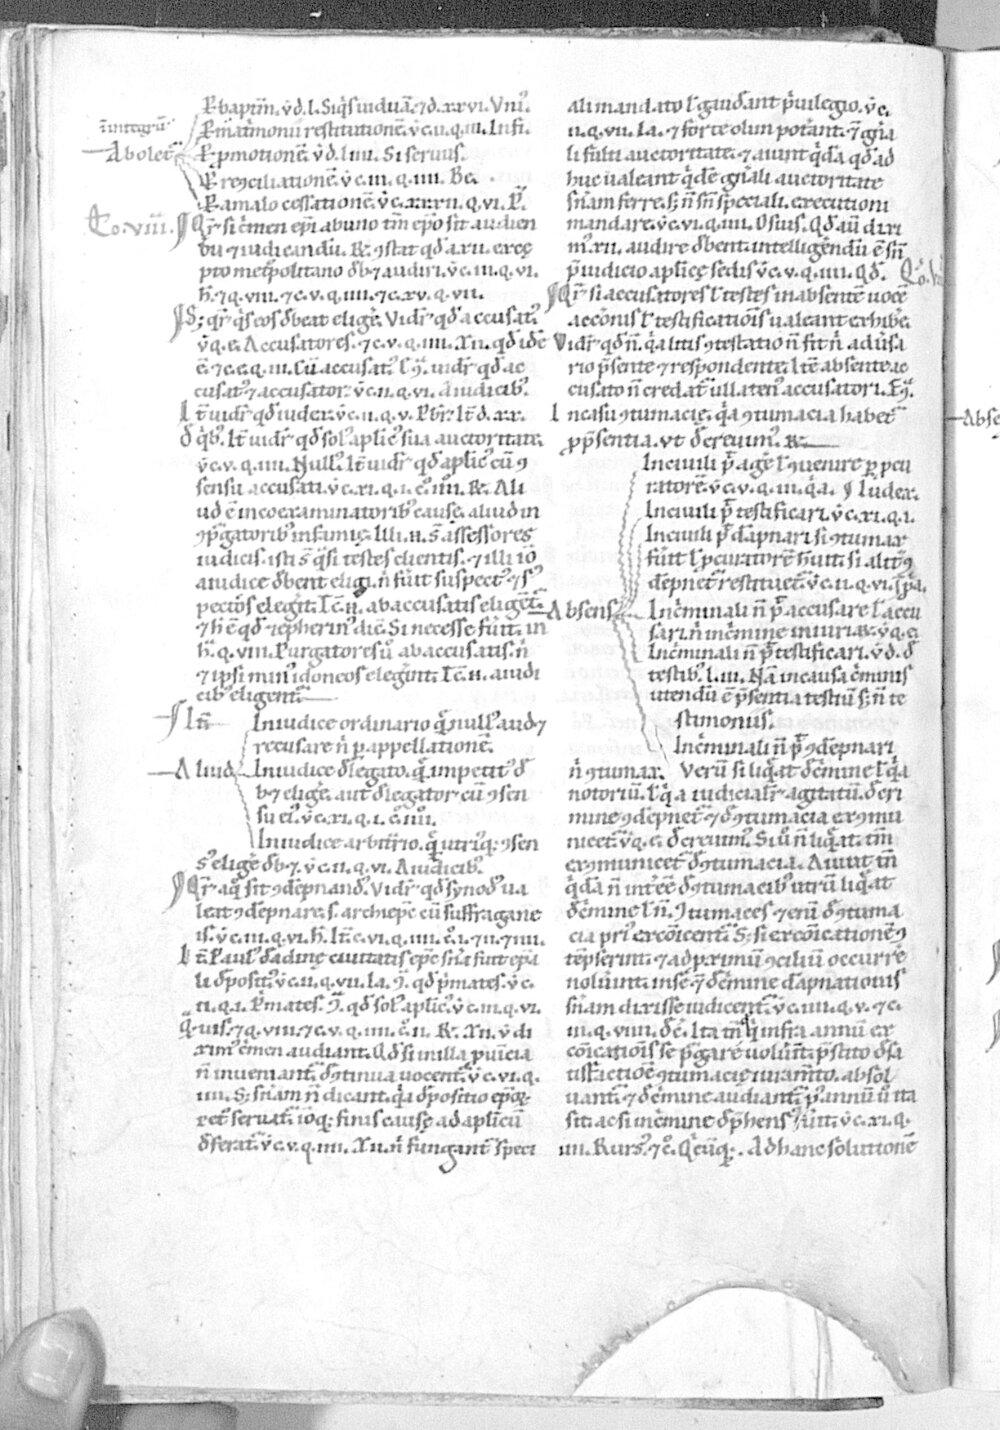 P̱ baptm̄. v̄ d. l. Siq̄s uiduā. ⁊ d. xxvi. Vn᷒.
īintegrū P̱ mat̄monii restitutionē. v̄ c. ii. q. iii. Infi.
Abolet᷑ P̱ p̱motionē. v̄ d. l iiii. Si seruus.
P̱ reꝯciliationē. v̄ c. iii. q. iiii. Be.
P̱ a malo cessationē. v̄ c. xxxii. q. vi.
Co. viii. Qr̄ si c̄men ep̄i ab uno tm̄ ep̄o sit audien
dū ⁊ iudicandū. R. ꝯstat qd̓ a xii. exce
pto met̓politano db̓ ⁊ audiri. v̄ c. iii. q. vi.
h̄. ⁊ q. viii. ⁊ c. v. q. iiii. ⁊ c. xv. q. vii.
S; qr̄ q̄s eos db̓eat elige᷑. Vidr̄ qd̓ accusat᷒
v̄ q. e. Accusatores. ⁊ c. v. q. iiii. xii. qd̓ idē
ē. ⁊ c. e. q. iii. Cū accusat᷒. vidr̄ qd̓ ac
cusat᷒ ⁊ accusator. v̄ c. ii. q. vi. A iudicib᷒.
It̄ vidr̄ qd̓ iudex. v̄ c. ii. q. v. Pbr̄. It̄ d. xx.
D̓ q̄b᷒. It̄ vidr̄ qd̓ sol᷒ aplic᷒ sua auctoritate.
v̄ c. v. q. iiii. Null᷒. It̄ vidr̄ qd̓ aplic᷒ cū ꝯ
sensu accusati. v̄ c. xi. q. i. c̄. iiii. R. Ali
ud ē in coexaminatorib᷒ cause. aliud in
ꝯp̱gatorib᷒ infamie. Illi. ii. s̄ assessores
iudicis. isti s̄ q̄si testes clientis. ⁊ illi iō
a iudice db̓ent eligi. n̄ fūit suspect᷒ ⁊ s᷒
pectos elegit. Tc̄. ii. ab accusatis eligent᷑
⁊ h̄ ē qd̓ Si necesse fūit. in
h̄. q. viii. Purgatores ū ab accusatis. n̄
⁊ ipsi min᷒ idoneos elegint. Tc̄. ii. a iudi
cib᷒ eligent᷑
It̄ In iudice ordinario q̄ null᷒ aud⁊
recusare n̄ p̱ appellationē.
Aliud In iudice dl̓egato. q̄ impetit᷒ d̓
b⁊ elige᷑. aut dl̓egator cū ꝯsen
su ei᷒. v̄ c. xi. q. i. c̄. iiii.
In iudice arbit̄rio. q̄ utriq᷒ꝫ ꝯsen
s᷒ elige᷑ db̓⁊. v̄ c. ii. q. vi. A iudicib᷒.
Qr̄ a q̄ sit ꝯdēpnand᷒. Vidr̄ qd̓ synod᷒ ua
leat ꝯdēpnare. s. archiep̄c cū suffragane
is. v̄ c. iii. q. vi. h̄. It̄ c. vi. q. iiii. c̄. i. ⁊ ii. ⁊ iiii.
It̄ Paul᷒ dadine ciuitatis ep̄c sn̄a fuit ep̄a
li dp̓osit᷒. v̄ c. ii. q. vii. La. qd̓ p̄mates. v̄ c.
ii. q. i. P̄mates. qd̓ sol᷒ aplic᷒. v̄ c. iii. q. vi.
Q̄uis. ⁊ q. viii. ⁊ c. v. q. iiii. c̄. ii. R. xii. v̄ di
xim᷒ c̄men audiant. Qd̓ si in illa p̱uīcia
n̄ inueniant᷑. d̓ ꝯtinua uocent᷑. v̄ c. vi. q.
iiii. S; sn̄am n̄ dicant. q̄a dp̓ositio ep̄oꝝ
ret̓ seruat᷑. iōq; finis cause ad aplicū
df̓erat᷑. v̄ c. v. q. iiii. xii. n̄ fungant᷑ speci
ali mandato l̄ gaud̓ant p̄uilegio. v̄ c.
ii. q. vii. La. ⁊ forte olim pot̓ant. ⁊ ḡna
li fulti auctoritate. ⁊ aiunt q̄da qd̓ ad
huc ualeant q̄dē ḡnali auctoritate
sn̄am ferre. s; n̄ sn̄ speciali. executioni
mandare. v̄ c. vi. q. iiii. Osius. Qd̓ aū diri
m᷒. xii. audire db̓ent. intelligendū ē sn̄
p̄iudicio aplice sedis v̄ c. v. q. iiii. Qd̓.
Qr̄ si accusatores l̄ testes in absentē uocē
accōnis l̄ testificatiōis ualeant exhibe᷑.
Vidr̄ qd̓ n̄. q̄a litis ꝯtestatio n̄ fit n̄ adusa
rio p̄sente ⁊ respondente. Itē absente ac
cusato n̄ credat᷑ ullaten᷒ accusatori.
In casu ꝯtumacie. q̄a ꝯtumacia habet᷑
p̱ p̄sentia. vt d̓creuim᷒. R.
In ciuili p̄ age᷑ l̄ ꝯuenire p̱ p̱cu
ratorē. v̄ c. v. q. iii. q̄a. Iudex.
In ciuili p̄ testificari. v̄ c. xi. q. i.
In ciuili p̄ d̄apnari si ꝯtumax
fūit l̄ p̱curatorē hūit. si alit̓ ꝯ
dēpnet᷑ restituet᷑. v̄ c. ii. q. vi. spa.
Absens In c̄minali n̄ p̄ accusare l̄ accu
sari. n̄ in c̄mine iniuriaꝝ. v̄ q. e.
In c̄minali n̄ p̄ testificari. v̄ d. d̓
testib᷒. l. iii. Nā in causa c̄minis
utendū ē p̄sentia testiū s; n̄ te
stimoniis.
In c̄minali n̄ p̄ ꝯdēpnari
n̄ ꝯtumax. Verū si liq̄at d̓ c̄mine l̄ q̄a
notoriū. l̄ q̄a iudicialr̄ agitatū. d̓ cri
mine ꝯdēpnet᷑ ⁊ d̓ ꝯtumacia exꝯmu
nicet᷑. v̄ q. e. d̓creuim᷒. Si ū n̄ liq̄at. tm̄
exꝯmunicet᷑ d̓ ꝯtumacia. Aiunt tn̄
q̄da n̄ int̓ēē d̓ ꝯtumacib᷒ utrū liq̄at
d̓ c̄mine l̄ n̄. ꝯtumaces ⁊enī d̓ ꝯtuma
cia pri᷒ excōicent᷑. S; si excōicationē ꝯ
tēpserint. ⁊ ad p̱ximū ꝯciliū occurre᷑
noluint. in se ⁊ d̓ c̄mine d̄apnationis
sn̄am dirisse iudicent᷑. v̄ c. iiii. q. v. ⁊ c.
iii. q. viiii. Ita tn̄ q̄ infra annū ex
cōicatiōis se p̱gare uoluīt. p̄stito d̓ sa
tisfactiōe ꝯtumacie iuram̄to. absol
uant᷑. ⁊ d̓ c̄mine audiant᷑. p᷒ annū ū ita
sit. ac si in c̄mine dp̓hens᷒ fūit. v̄ c. xi. q.
iiii. Rurs᷒. ⁊ c̄. Q̄cūq;. Ad hanc solutionē
Abse